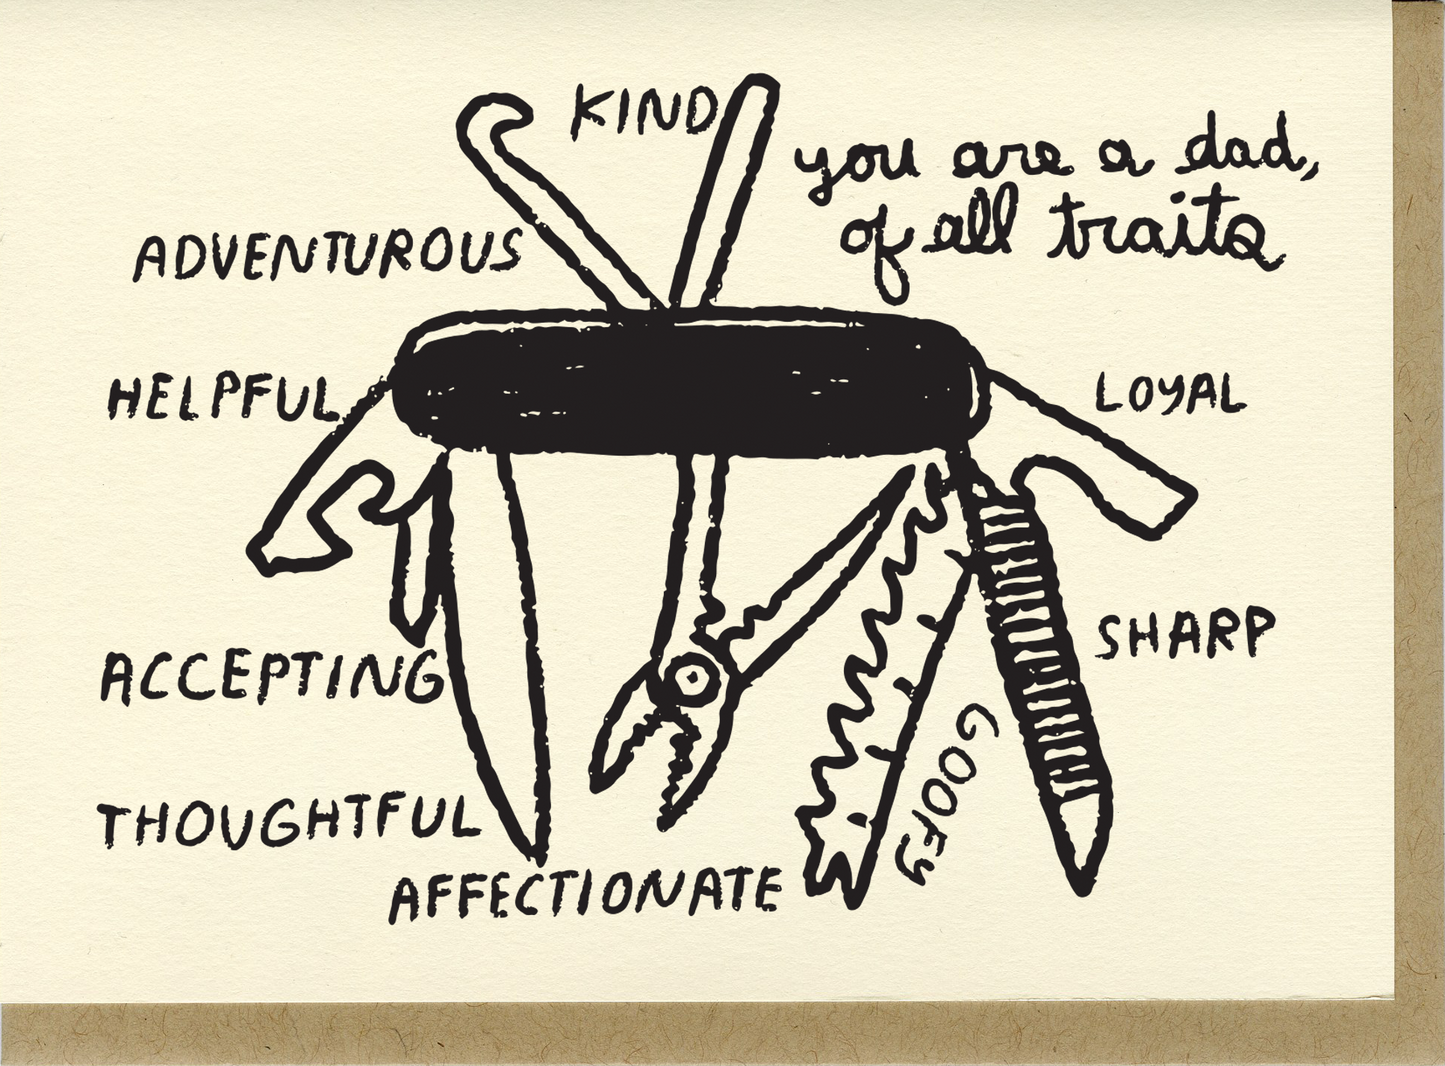 KIND
you are a dad,
of all traits
ADVENTUROUS
HELPFUL
LOYAL
SHARP
ACCEPTING
GOOFY
THOUGHTFUL
AFFECTIONATE